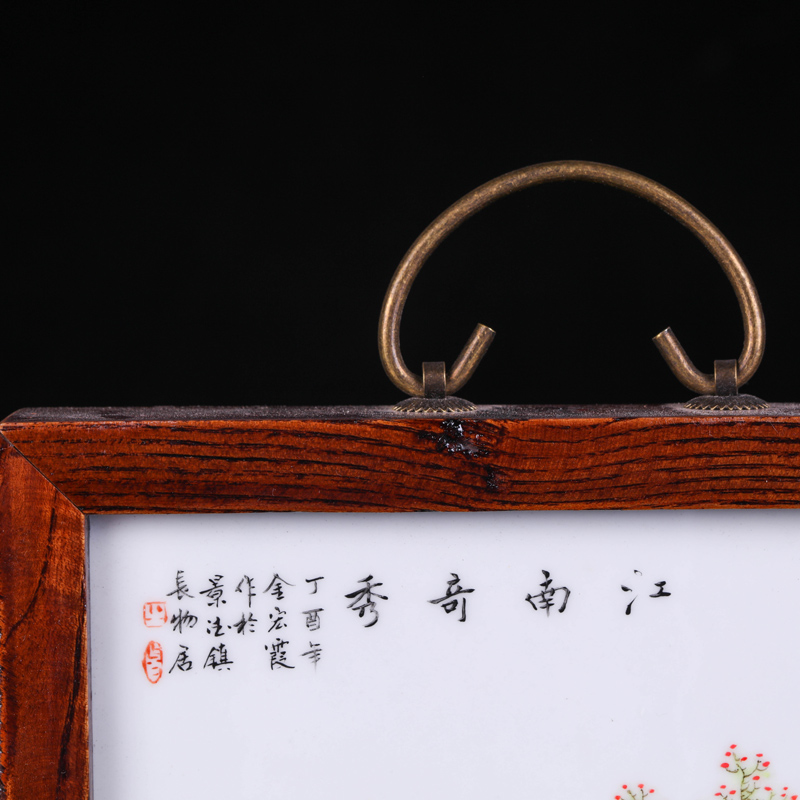 江南奇秀
丁酉年
金宏霞
作於
景德镇
長物居